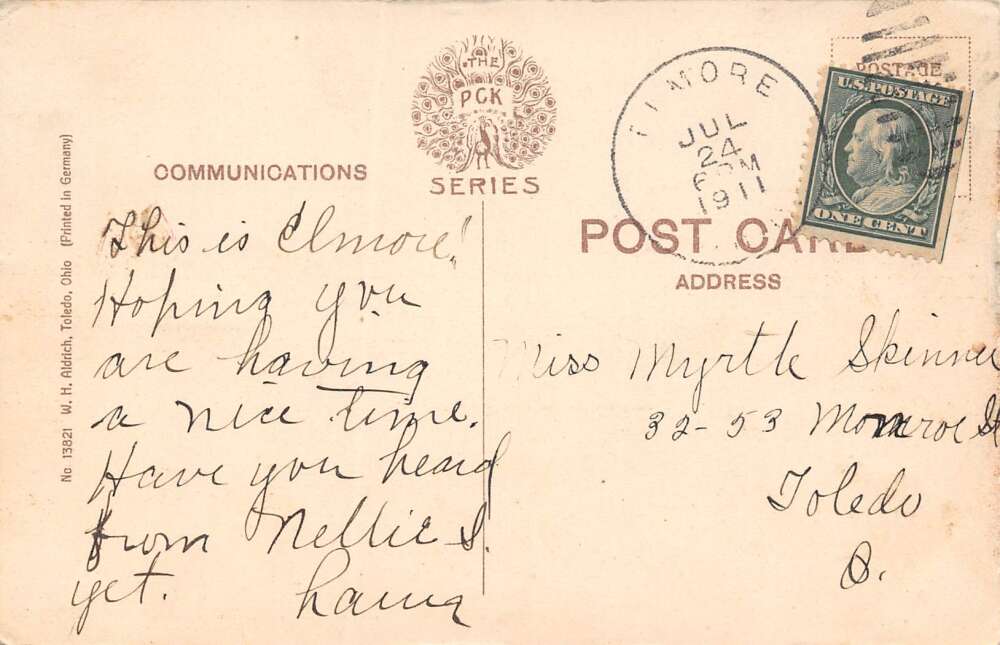 THE
PCK
SERIES
COMMUNICATIONS
This is Elmore!
Hoping you
are having
a nice time.
Have you heard
from Nellie S.
yet.
No 13821 W. H. Aldrich, Toledo, Ohio (Printed in Germany)
ELMORE
JUL
24
1911
POSTAGE
U.S. POSTAGE
ONE CENT
POST CARD
ADDRESS
Miss Myrtle Skinner
32-53 Monroe St
Toledo
O.